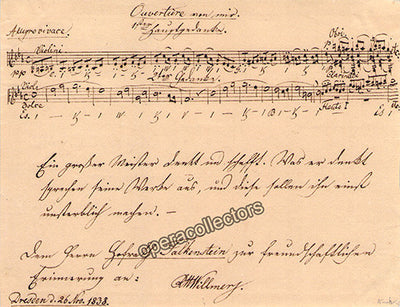 Ouvertüre von mir.
1ster Hauptgedanke.
Allegro vivace.
Violini
Oboi
pp
2ter Gedanke.
Clarinetti
Viole
dolce
Flauti
Ein großer Meister denkt und schafft. Was er denkt
sprechen seine Werke aus, und diese sollen ihn einst
unsterblich machen. —
operacollectors
Dem Herrn Hofrath Falkenstein zur freundschaftlichen
Erinnerung an:
Willmers.
Dresden d. 26 Nov. 1838.